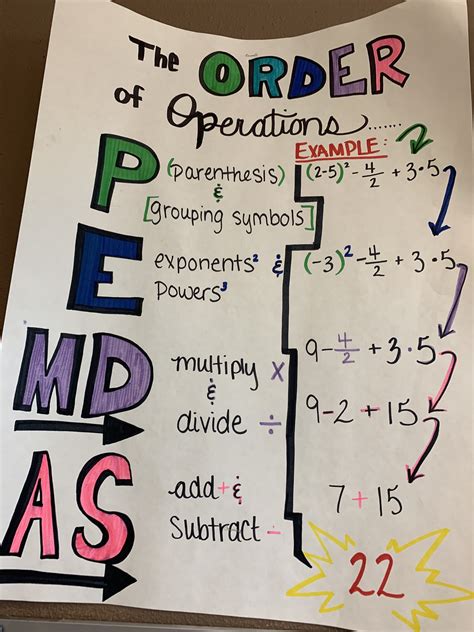 The ORDER
of Operations......
P
(parenthesis)
&
[grouping symbols]
E
exponents² &
Powers³
MD
multiply ×
&
divide ÷
AS
add + &
Subtract -
EXAMPLE:
(2-5)² - 4/2 + 3·5
(-3)² - 4/2 + 3·5
9 - 4/2 + 3·5
9 - 2 + 15
7 + 15
22